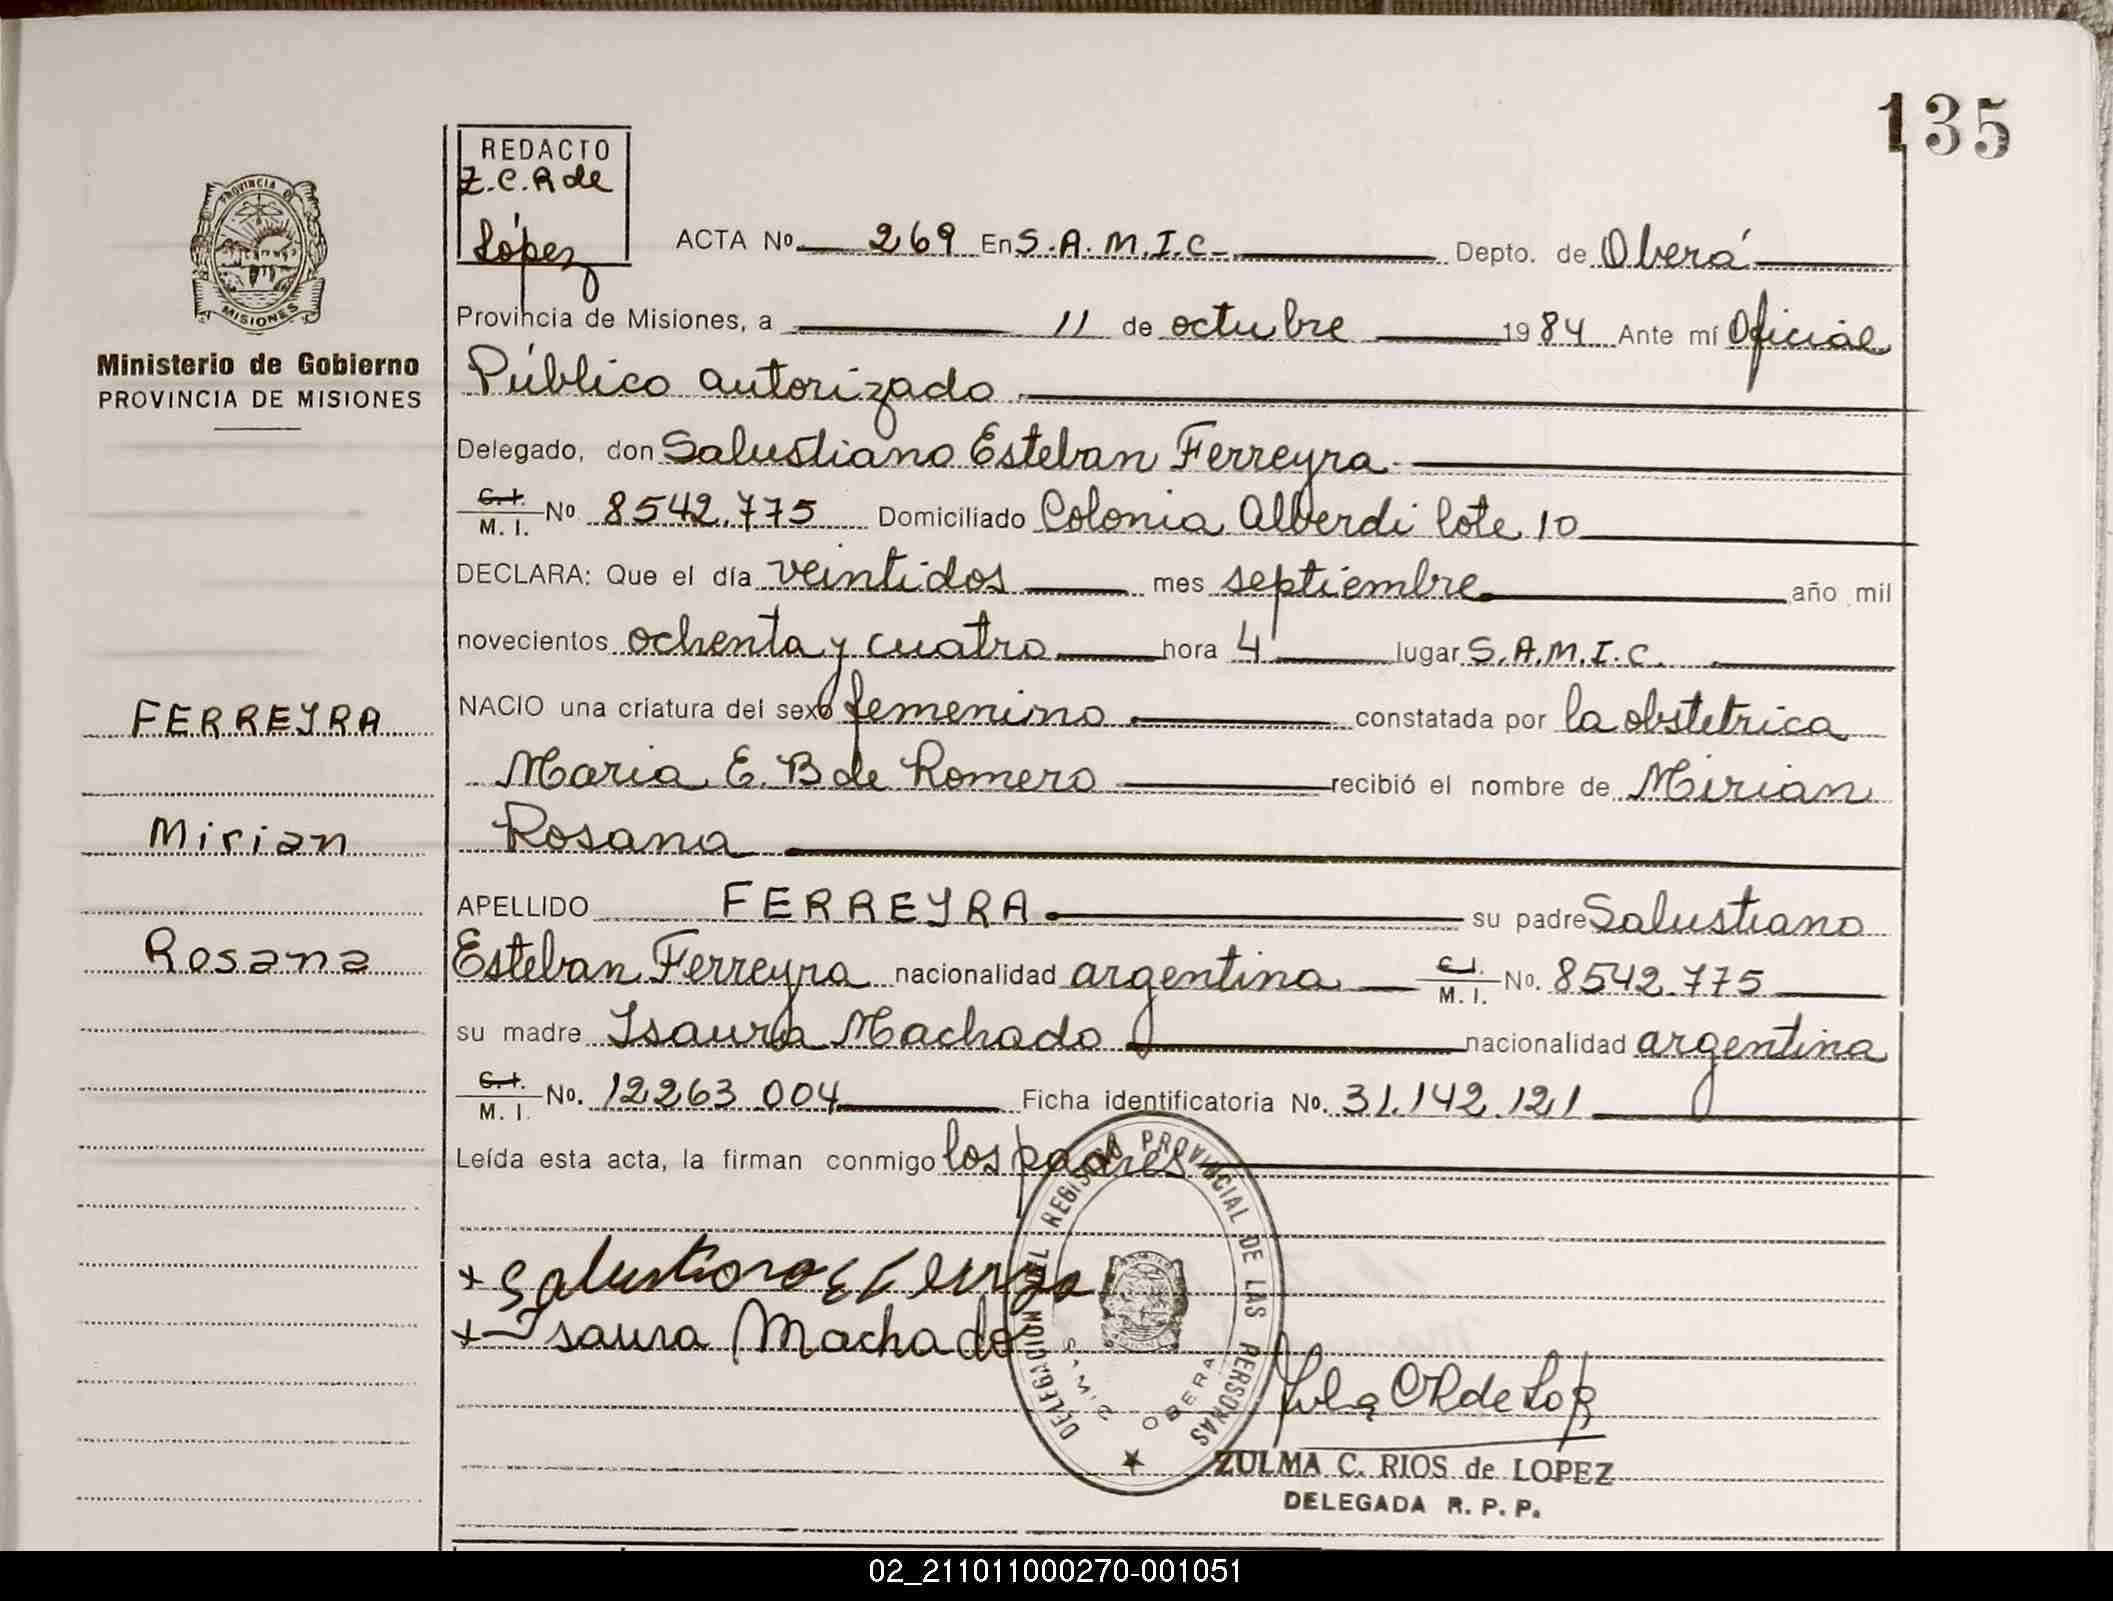 135
REDACTO
Z.C.R de
López
PROVINCIA DE
MISIONES
Ministerio de Gobierno
PROVINCIA DE MISIONES
ACTA No 269 En S.A.M.I.C. Depto. de Oberá
Provincia de Misiones, a 11 de octubre 1984 Ante mí Oficial
Público autorizado
Delegado, don Salustiano Esteban Ferreyra
C.I. M. I. No 8542.775 Domiciliado Colonia Alberdi lote 10
DECLARA: Que el día veintidos mes septiembre año mil
novecientos ochenta y cuatro hora 4 lugar S.A.M.I.C.
FERREYRA
NACIO una criatura del sexo femenino constatada por la obstetrica
Maria E. B de Romero recibió el nombre de Mirian
Mirian
Rosana
APELLIDO FERREYRA su padre Salustiano
Rosana
Esteban Ferreyra nacionalidad argentina C.I. M. I. No. 8542.775
su madre Isaura Machado nacionalidad argentina
C.I. M. I. No. 12263.004 Ficha identificatoria No. 31.142.121
Leída esta acta, la firman conmigo los padres
+ Salustiano E Ferreyra
+ Isaura Machado
DELEGACION DEL REGISTRO PROVINCIAL DE LAS PERSONAS
SAMIC OBERA
Zulma C R de Lopez
ZULMA C. RIOS de LOPEZ
DELEGADA R. P. P.
02_211011000270-001051